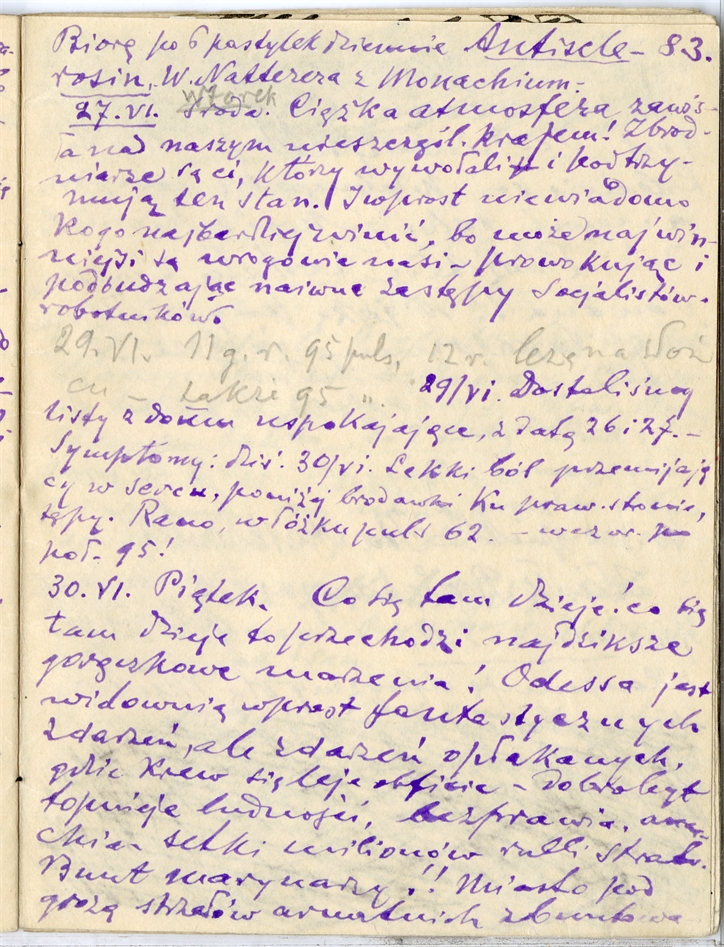 Biorę po 6 pastylek dziennie Antiscle- 83.
rosin, W. Natterera z Monachium.
wtorek
27.VI. Środa. Ciężka atmosfera zawis-
ła nad naszym nieszczęśl. krajem! Zbrod-
niarze są ci, którzy wywołali i podtrzy-
mują ten stan. Iwprost niewiadomo
kogo najbardziej winić, bo może najwin-
niejsi są wrogowie nasi - prowokując i
podburzając naiwne zastępy socjalistów-
robotników.
29.VI. 11 g. r. 95 puls, 12 r. leżę na
- także 95 " 29/VI. Dostaliśmy
listy z domu uspokajające, z datą 26 i 27. -
Symptomy: dziś. 30/VI. Lekki ból przemijają
cy w sercu, poniżej brodawki ku praw. stronie,
tępy. Rano, w łóżku puls 62. - wczor. po
poł. 95!
30.VI. Piątek. Co się tam dzieje! co się
tam dzieje to przechodzi najdziksze
gorączkowe marzenia! Odessa jest
widownią wprost fantastycznych
zdarzeń, ale zdarzeń opłakanych,
gdzie krew się leje obficie - dobrobyt
topnieje ludności, bezprawia,
setki milionów rubli strat.
Bunt marynarzy!! Miasto pod
grozą strzałów armatnich zbuntowa